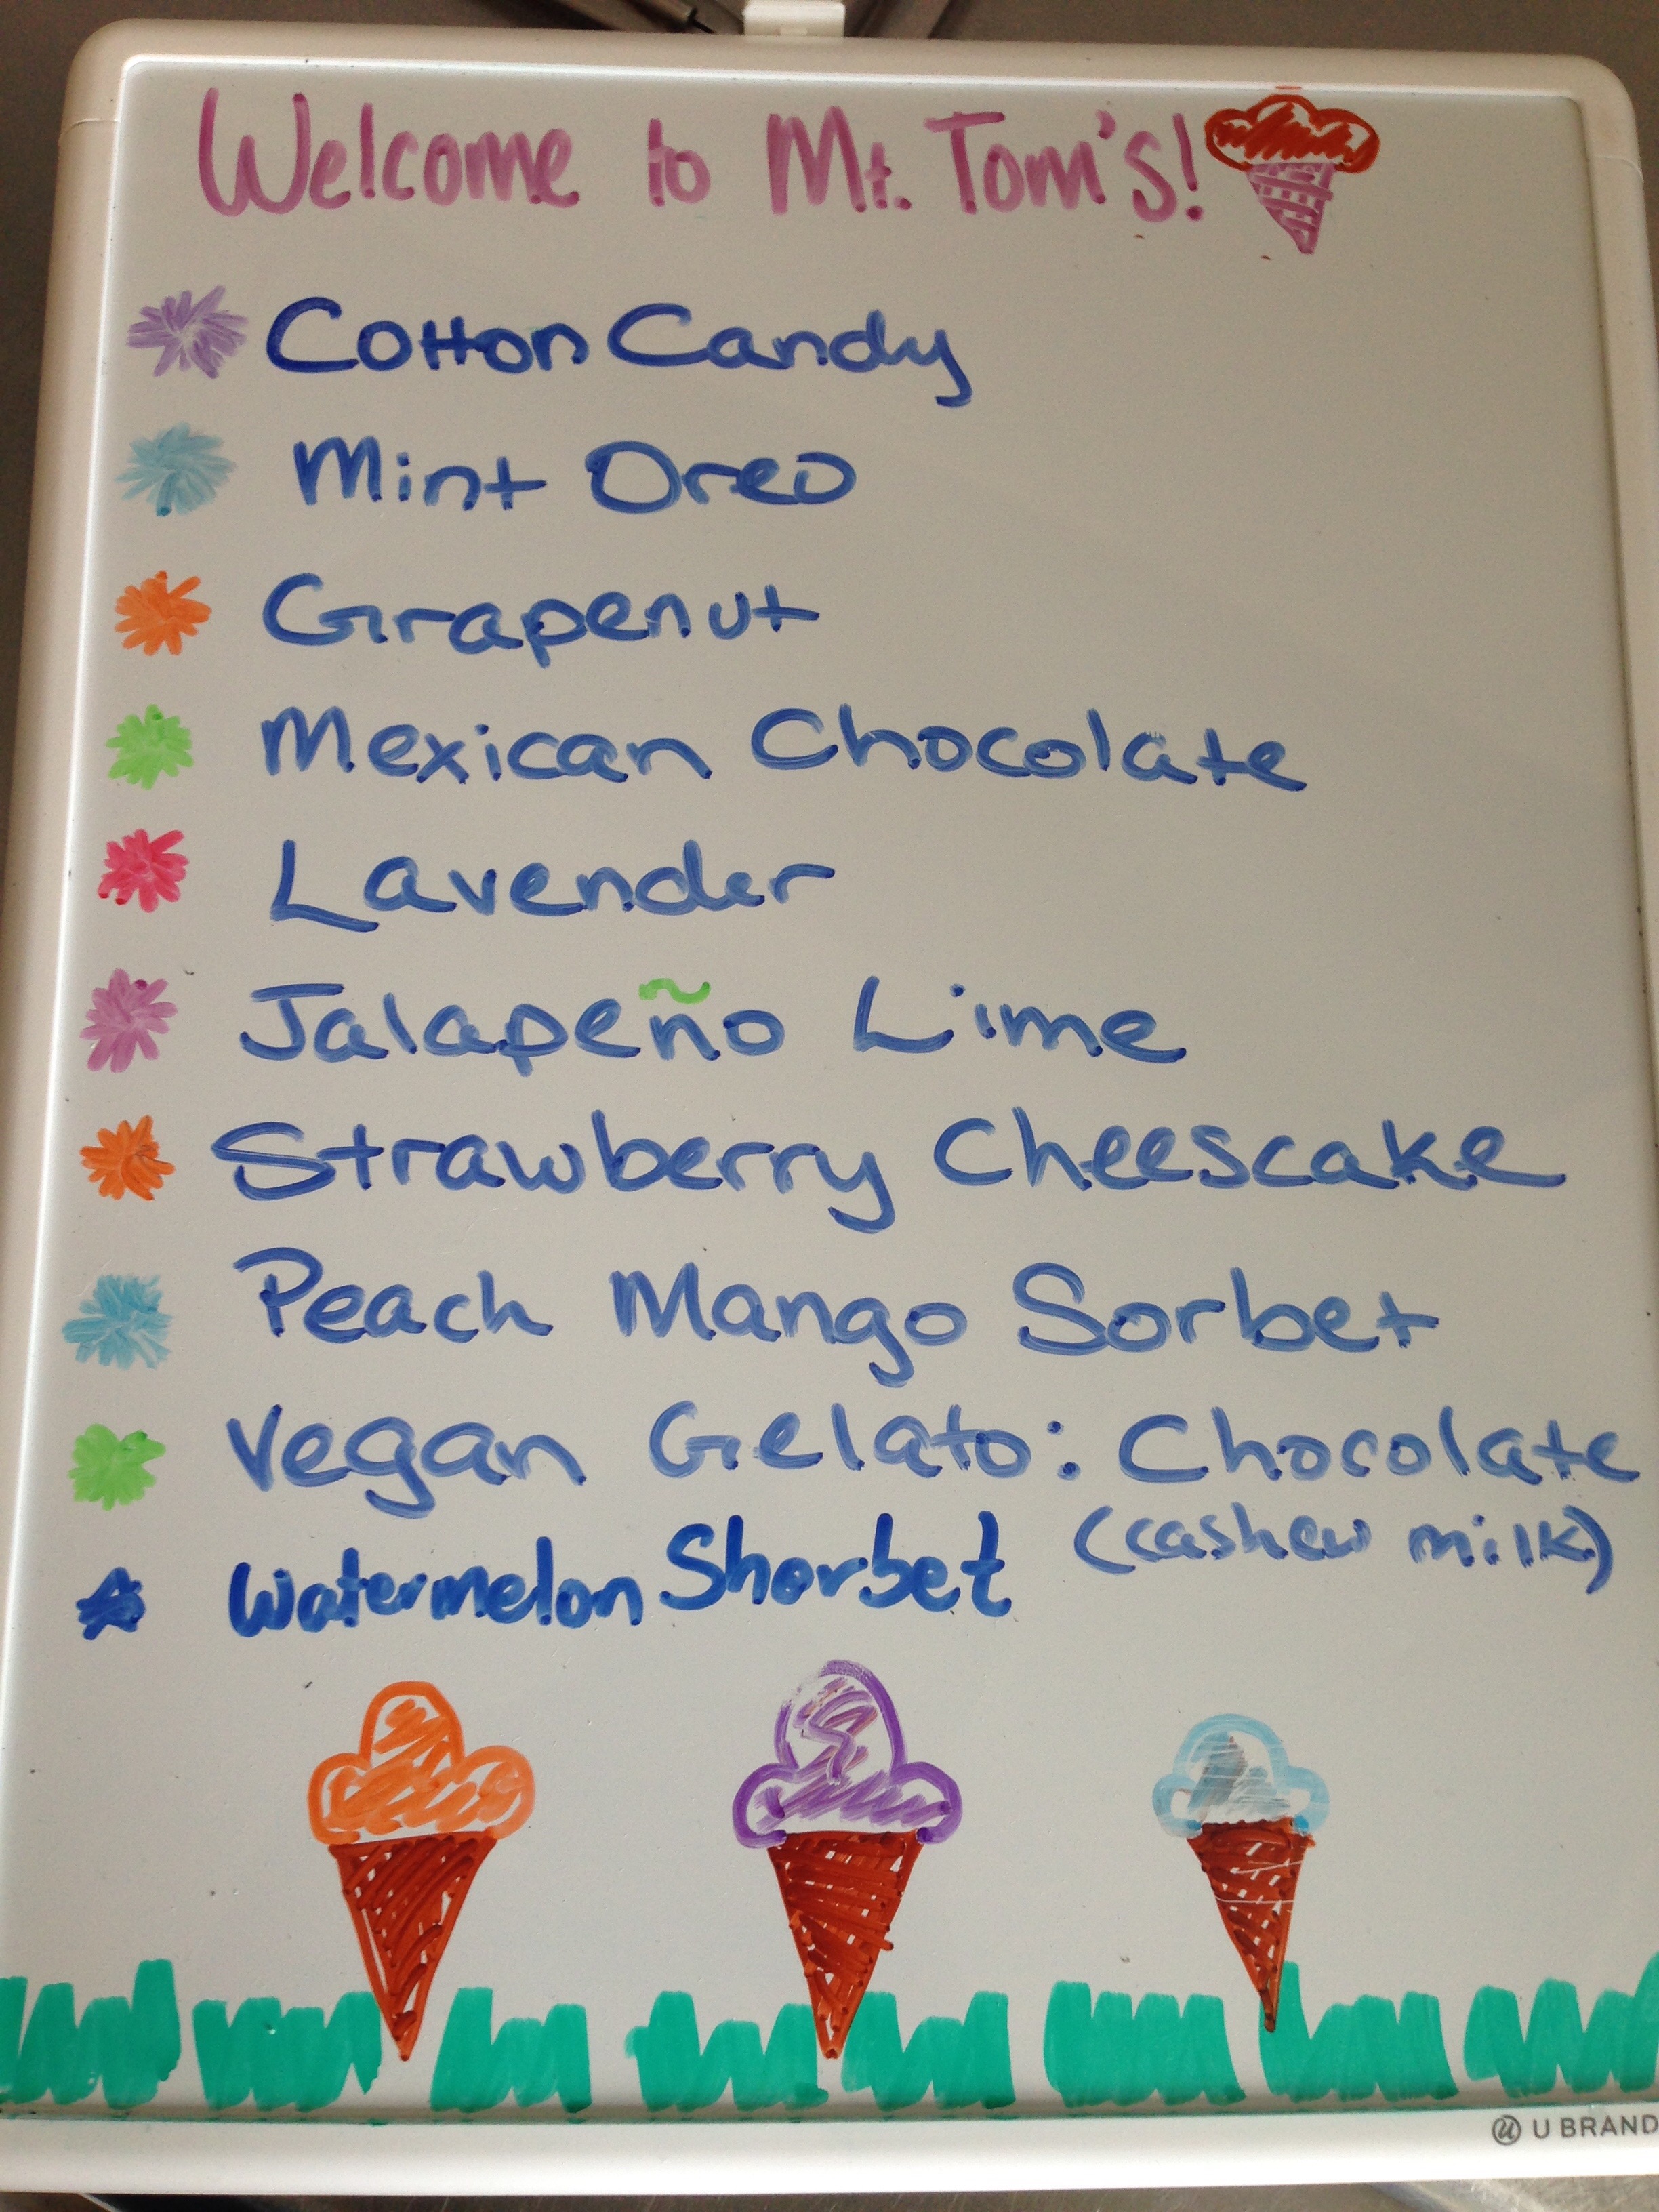 Welcome to Mt. Tom's!
Cotton Candy
Mint Oreo
Grapenut
Mexican Chocolate
Lavender
Jalapeño Lime
Strawberry Cheescake
Peach Mango Sorbet
Vegan Gelato: Chocolate
(cashew milk)
Watermelon Shorbet
U BRAND